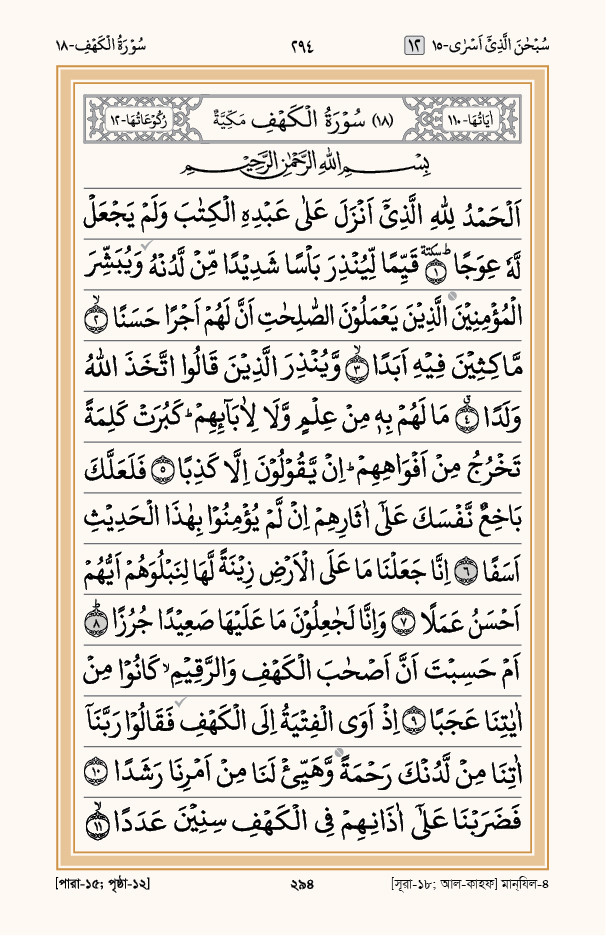 سُوْرَةُ الْكَهْفِ-١٨ ٢٩٤ ١٢ سُبْحٰنَ الَّذِىْۤ اَسْرٰى-١٥
اٰيَاتُهَا-١١٠ (١٨) سُوْرَةُ الْكَهْفِ مَكِّيَّةٌ رُكُوْعَاتُهَا-١٢
بِسْمِ اللهِ الرَّحْمٰنِ الرَّحِيْمِ
اَلْحَمْدُ لِلّٰهِ الَّذِىْۤ اَنْزَلَ عَلٰى عَبْدِهِ الْكِتٰبَ وَلَمْ يَجْعَلْ
لَّهٗ عِوَجًا ؕسكتة ﴿١﴾ قَيِّمًا لِّيُنْذِرَ بَاْسًا شَدِيْدًا مِّنْ لَّدُنْهُ وَيُبَشِّرَ
الْمُؤْمِنِيْنَ الَّذِيْنَ يَعْمَلُوْنَ الصّٰلِحٰتِ اَنَّ لَهُمْ اَجْرًا حَسَنًا ۙ﴿٢﴾
مَّاكِثِيْنَ فِيْهِ اَبَدًا ۙ﴿٣﴾ وَّيُنْذِرَ الَّذِيْنَ قَالُوا اتَّخَذَ اللهُ
وَلَدًا ۗ﴿٤﴾ مَا لَهُمْ بِهٖ مِنْ عِلْمٍ وَّلَا لِاٰبَآئِهِمْ ؕ كَبُرَتْ كَلِمَةً
تَخْرُجُ مِنْ اَفْوَاهِهِمْ ؕ اِنْ يَّقُوْلُوْنَ اِلَّا كَذِبًا ﴿٥﴾ فَلَعَلَّكَ
بَاخِعٌ نَّفْسَكَ عَلٰۤى اٰثَارِهِمْ اِنْ لَّمْ يُؤْمِنُوْا بِهٰذَا الْحَدِيْثِ
اَسَفًا ﴿٦﴾ اِنَّا جَعَلْنَا مَا عَلَى الْاَرْضِ زِيْنَةً لَّهَا لِنَبْلُوَهُمْ اَيُّهُمْ
اَحْسَنُ عَمَلًا ﴿٧﴾ وَاِنَّا لَجٰعِلُوْنَ مَا عَلَيْهَا صَعِيْدًا جُرُزًا ؕ﴿٨﴾
اَمْ حَسِبْتَ اَنَّ اَصْحٰبَ الْكَهْفِ وَالرَّقِيْمِ ۙ كَانُوْا مِنْ
اٰيٰتِنَا عَجَبًا ﴿٩﴾ اِذْ اَوَى الْفِتْيَةُ اِلَى الْكَهْفِ فَقَالُوْا رَبَّنَاۤ
اٰتِنَا مِنْ لَّدُنْكَ رَحْمَةً وَّهَيِّئْ لَنَا مِنْ اَمْرِنَا رَشَدًا ﴿١٠﴾
فَضَرَبْنَا عَلٰۤى اٰذَانِهِمْ فِى الْكَهْفِ سِنِيْنَ عَدَدًا ۙ﴿١١﴾
[পারা-১৫; পৃষ্ঠা-১২] ২৯৪ [সূরা-১৮; আল-কাহফ] মান্‌যিল-৪